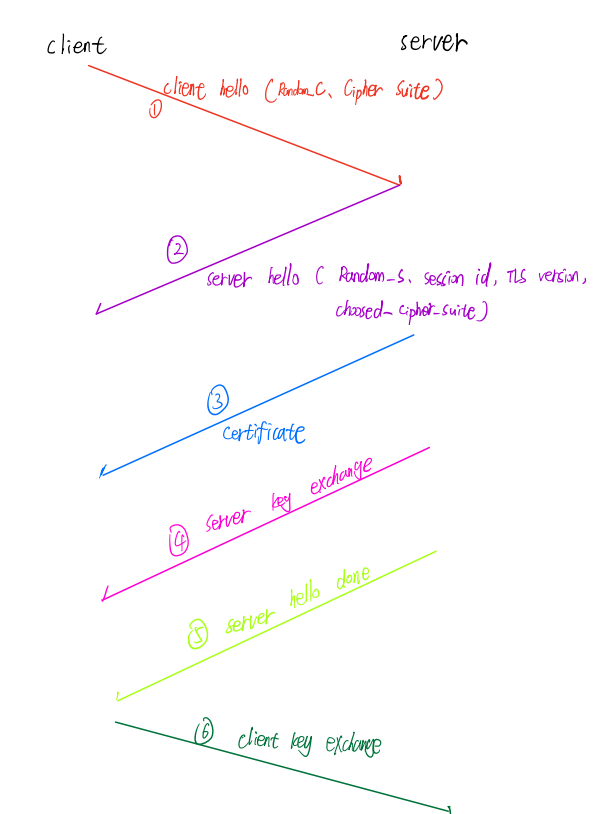 client
server
client hello (Random_C、Cipher Suite)
①
②
server hello ( Random_S、session id, TLS version,
choosed_cipher_suite)
③
certificate
④ server key exchange
⑤ server hello done
⑥ client key exchange